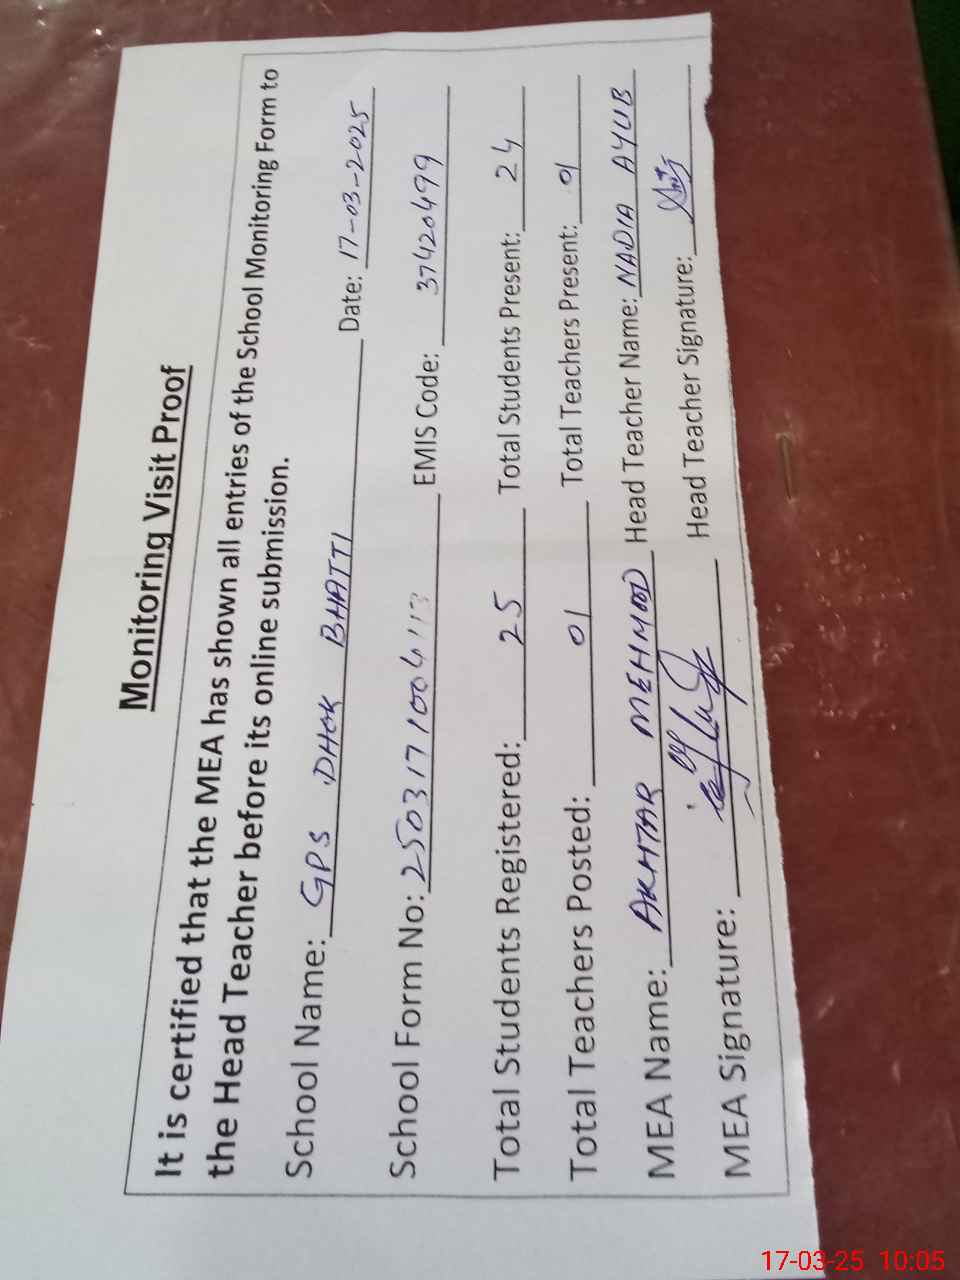 Monitoring Visit Proof
It is certified that the MEA has shown all entries of the School Monitoring Form to
the Head Teacher before its online submission.
School Name: GPS DHOK BHATTI Date: 17-03-2025
School Form No: 2503171004113 EMIS Code: 37420499
Total Students Registered: 25 Total Students Present: 24
Total Teachers Posted: 01 Total Teachers Present: 01
MEA Name: AKHTAR MEHMOOD Head Teacher Name: NADIA AYUB
MEA Signature: Head Teacher Signature:
17-03-25 10:05